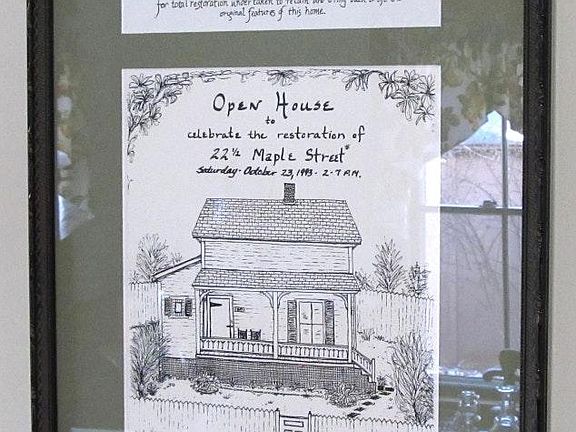 for total restoration undertaken to retain and bring back
original features of this home.
Open House
to
celebrate the restoration of
22 ½ Maple Street*
Saturday · October 23, 1993 - 2-7 P.M.